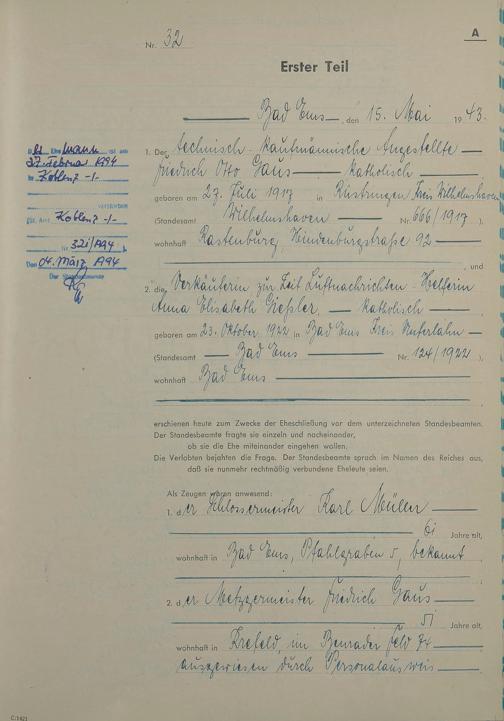 A
Nr. 32
Erster Teil
Bad Ems, den 15. Mai 1943.
1. Der technisch-kaufmännische Angestellte
Friedrich Otto Gaus katholisch
geboren am 27. Juli 1917 in Rüstringen Kreis Wilhelmshaven
(Standesamt Wilhelmshaven Nr. 666/1917)
wohnhaft Rastenburg, Hindenburgstraße 92
, und
2. die Verkäuferin zur Zeit Luftnachrichten-Helferin
Anna Elisabeth katholisch
geboren am 23. Oktober 1922 in Bad Ems Kreis Unterlahn
(Standesamt Bad Ems Nr. 124/1922)
wohnhaft Bad Ems
erschienen heute zum Zwecke der Eheschließung vor dem unterzeichneten Standesbeamten.
Der Standesbeamte fragte sie einzeln und nacheinander,
ob sie die Ehe miteinander eingehen wollen.
Die Verlobten bejahten die Frage. Der Standesbeamte sprach im Namen des Reiches aus,
daß sie nunmehr rechtmäßig verbundene Eheleute seien.
Als Zeugen waren anwesend:
1. der Schlossermeister Karl Müller
61 Jahre alt,
wohnhaft in Bad Ems, Pfahlgraben 5, bekannt
2. der Metzgermeister Friedrich Gaus
51 Jahre alt,
wohnhaft in Krefeld, im Benrader Feld 74
ausgewiesen durch Personalausweis
Ehemann ist am
27. Februar 1994
in Koblenz -/-
verstorben
St. Amt Koblenz -/-
Nr. 321/1994
Den 04. März 1994
Der Standesbeamte